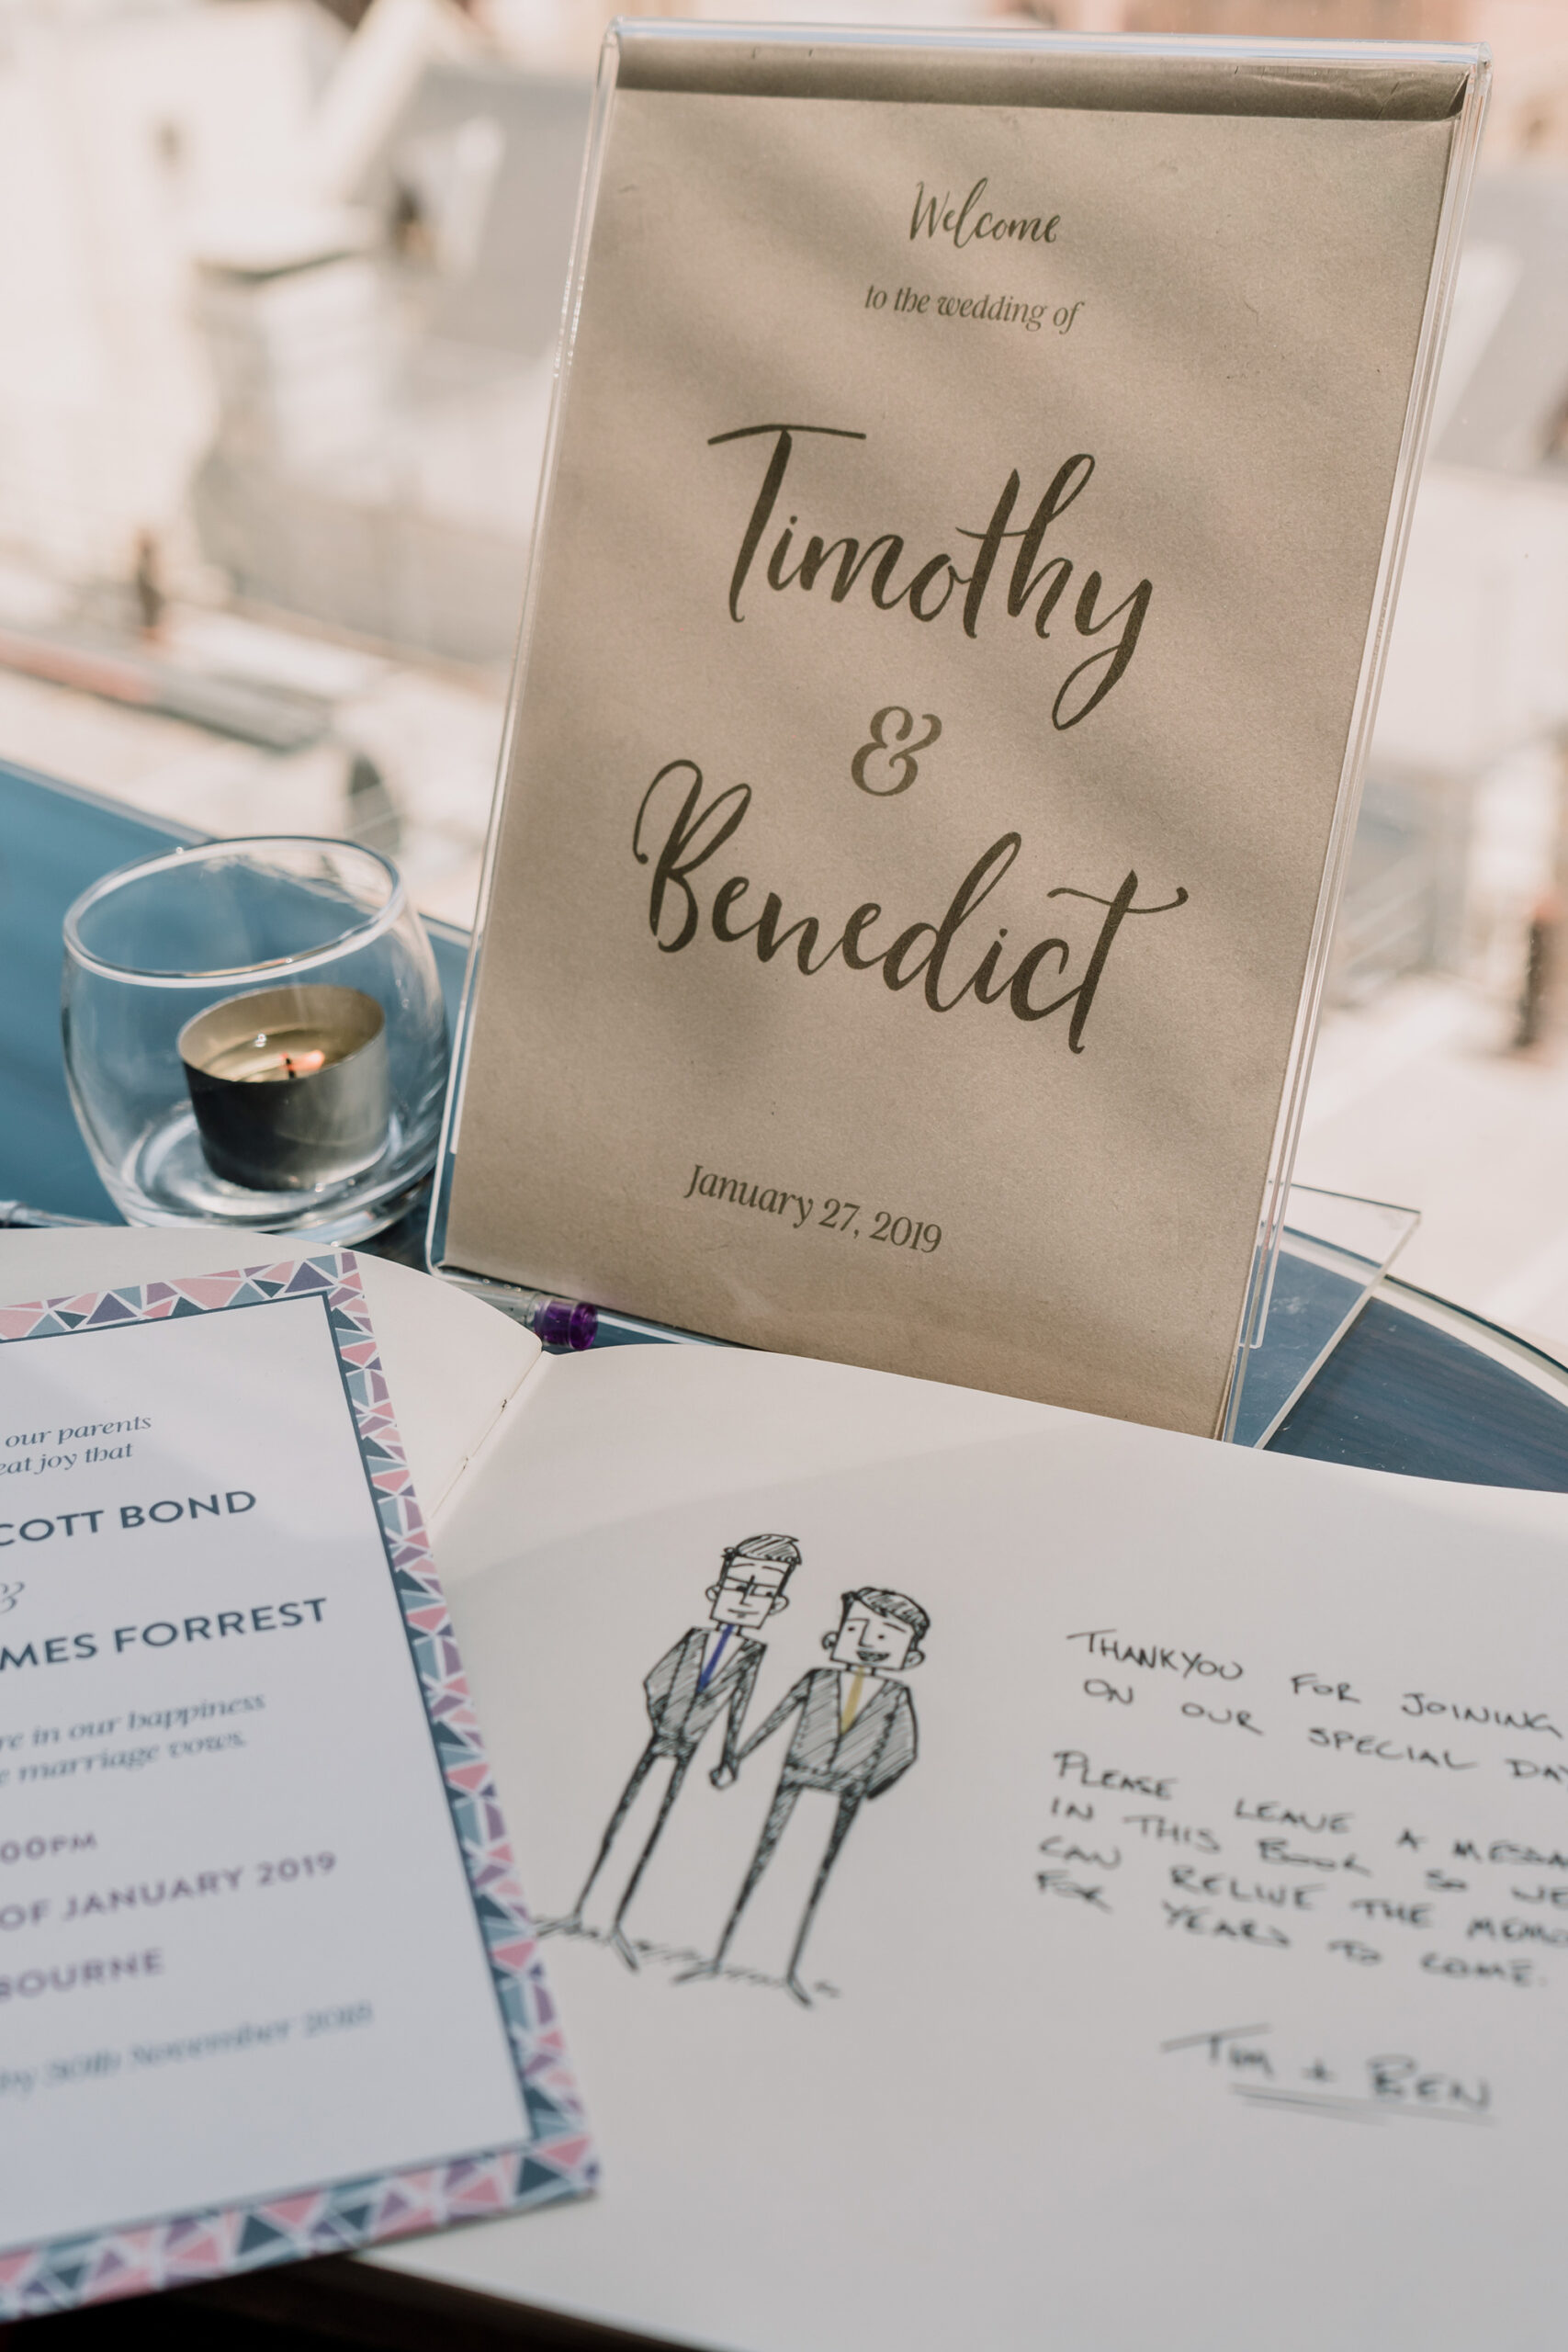 Welcome
to the wedding of
Timothy
&
Benedict
January 27, 2019
our parents
eat joy that
COTT BOND
&
MES FORREST
re in our happiness
e marriage vows.
00PM
OF JANUARY 2019
BOURNE
by 30th November 2018
THANKYOU FOR JOINING
ON OUR SPECIAL DAY
PLEASE LEAVE A MESSA
IN THIS BOOK SO WE
CAN RELIVE THE MEMO
FOR YEARS TO COME.
TIM + BEN